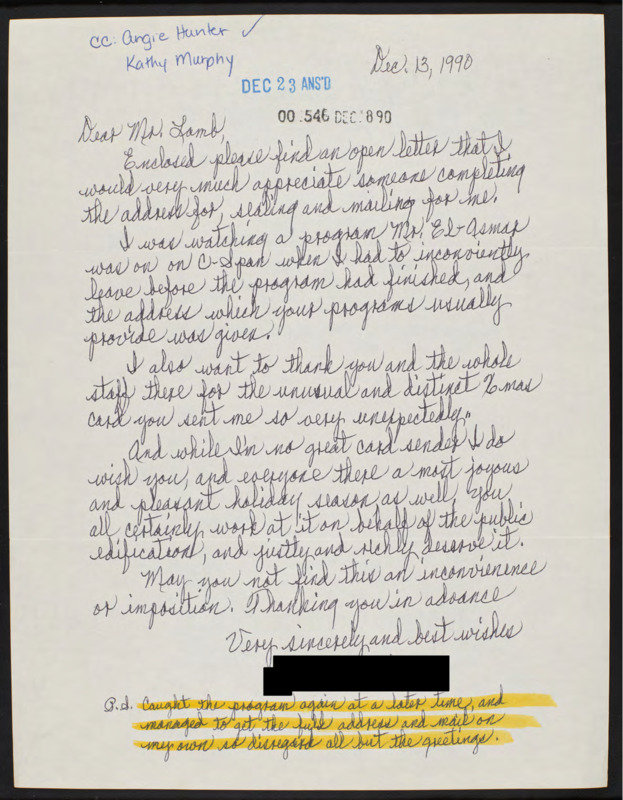 cc: Angie Hunter ✓
Kathy Murphy
Dec. 13, 1990
DEC 23 ANS'D
00.546 DEC.'8 90
Dear Mr. Lamb,
Enclosed please find an open letter that I
would very much appreciate someone completing
the address for, sealing and mailing for me.
I was watching a program Mr. El-Asmar
was on on C-Span when I had to inconviently
leave before the program had finished, and
the address which your programs usually
provide was given.
I also want to thank you and the whole
staff there for the unusual and distinct Xmas
card you sent me so very unexpectedly.
And while I'm no great card sender I do
wish you, and everyone there a most joyous
and pleasant holiday season as well, you
all certainly work at it on behalf of the public
edification, and justly and richly deserve it.
May you not find this an inconvienence
or imposition. Thanking you in advance
Very sincerely and best wishes
P.S. Caught the program again at a later time, and
managed to get the full address and mail on
my own so disregard all but the greetings.